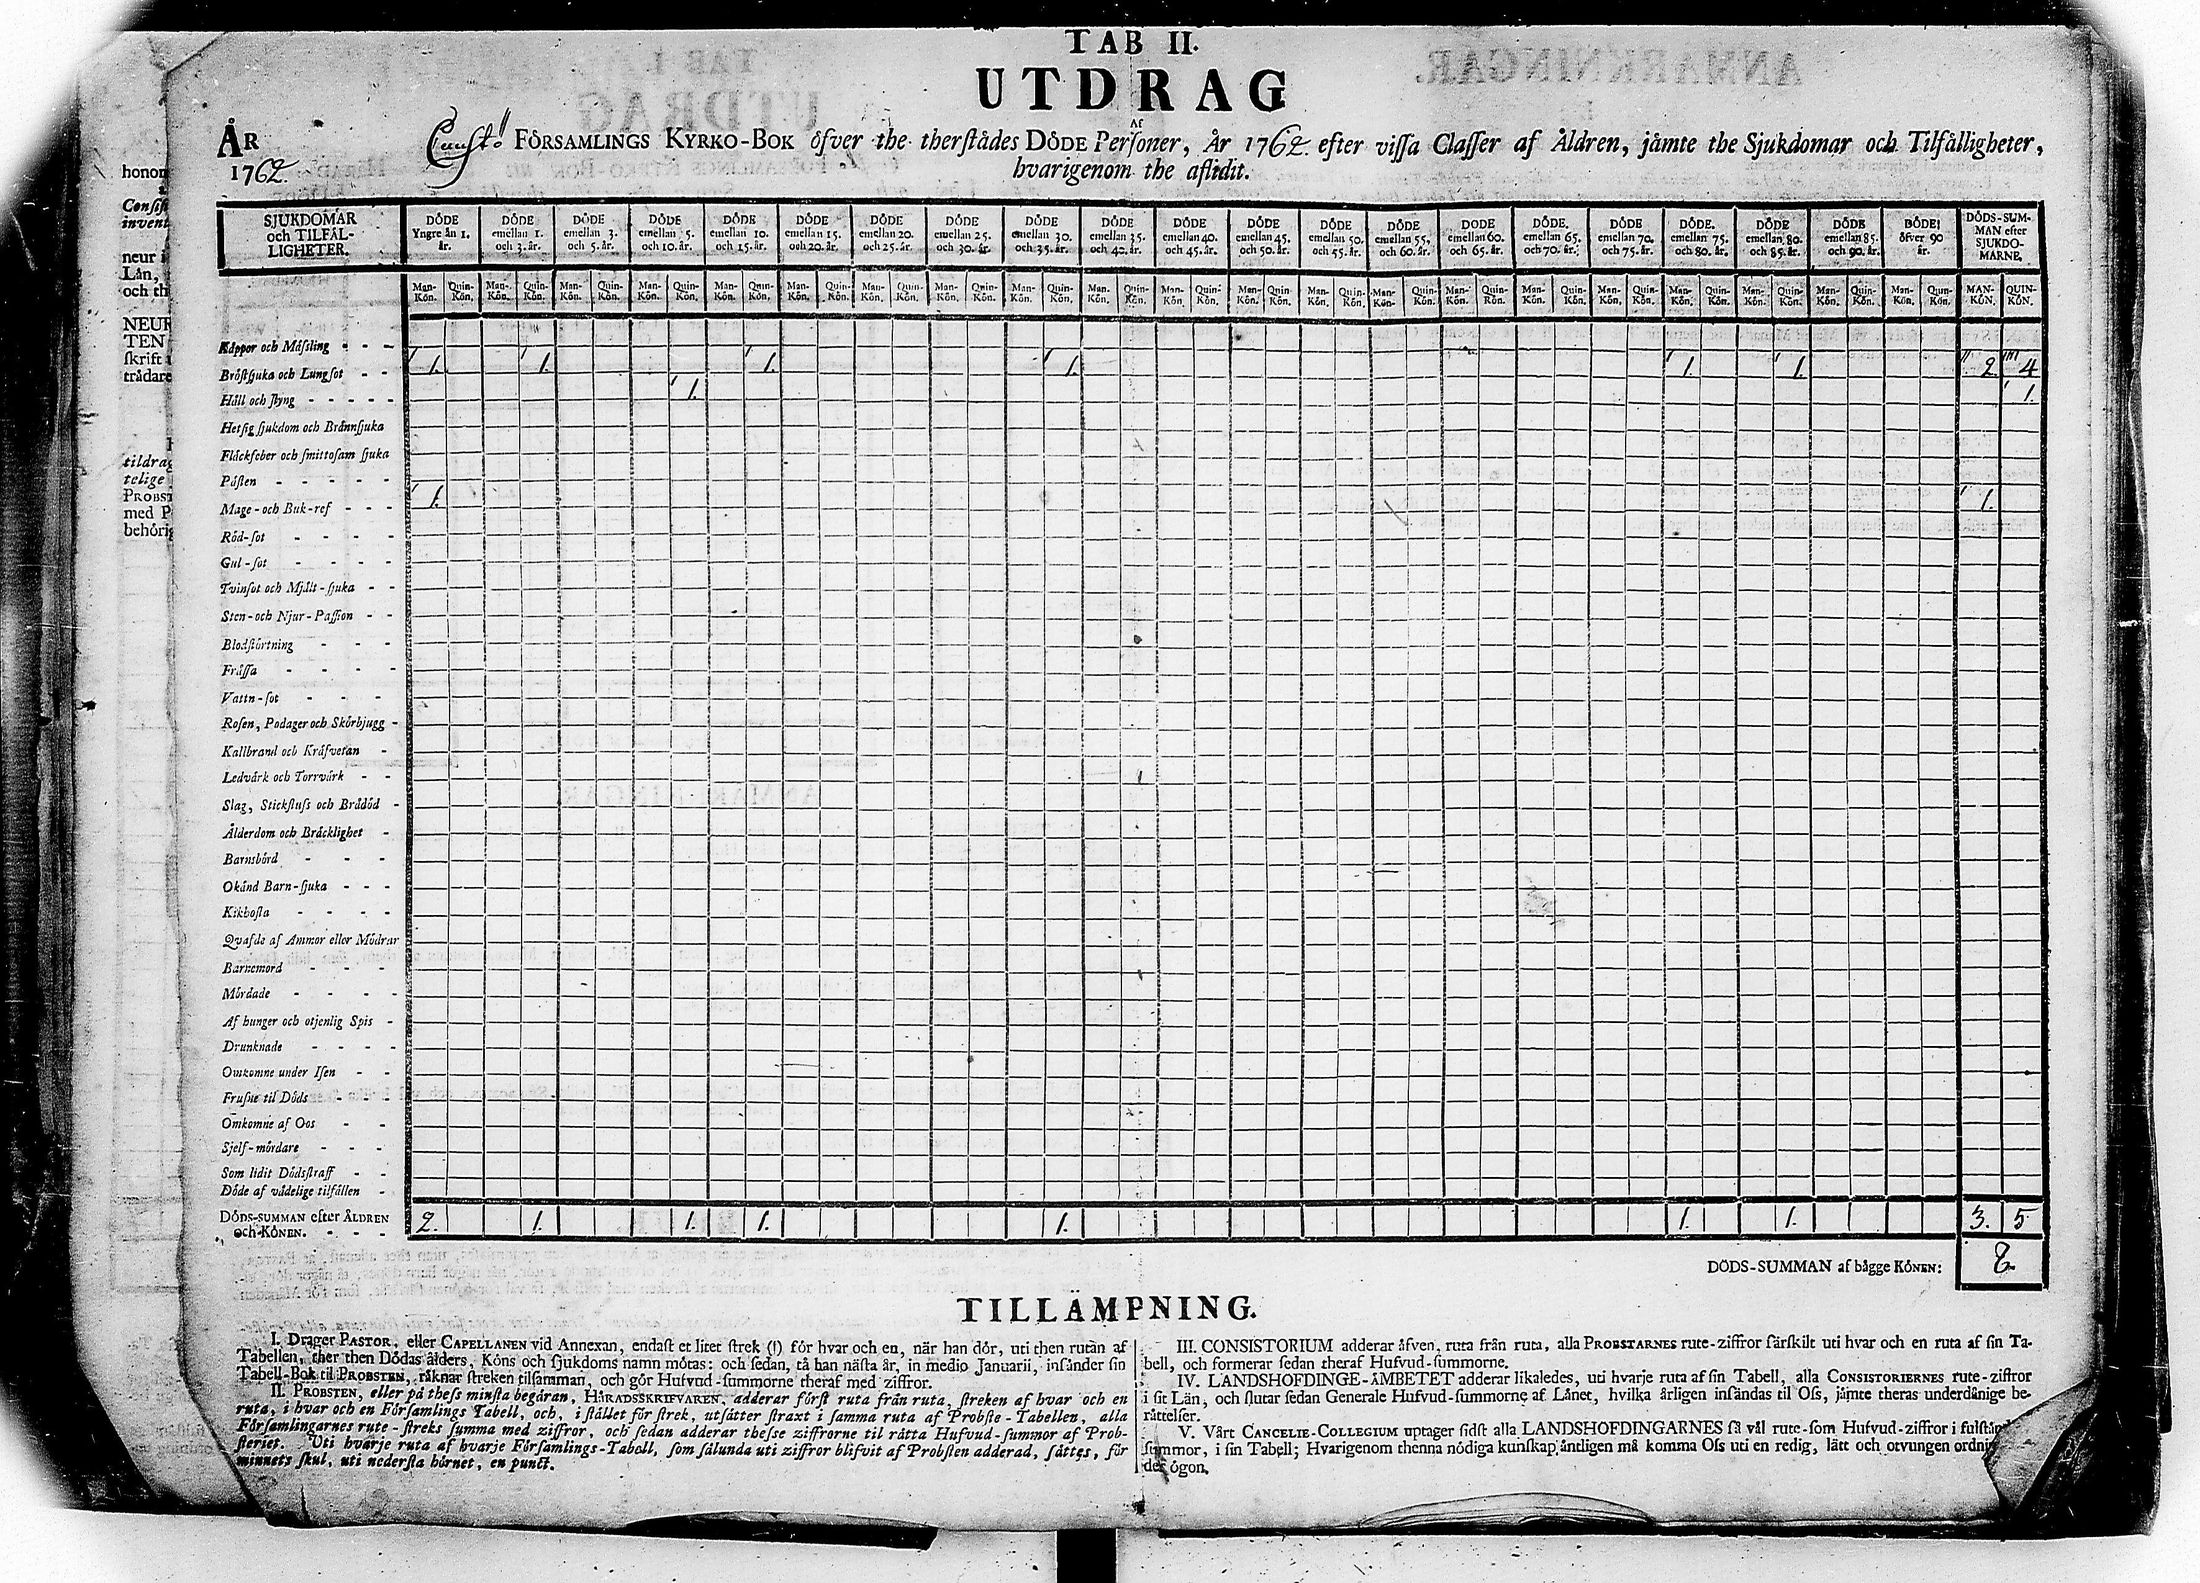 TAB II.
UTDRAG
Af
ÅR
1762.
FÖRSAMLINGS KYRKO-BOK öfver the therstådes DÖDE Personer, År 1762. efter vissa Classer af Åldren, jämte the Sjukdomar och Tilfälligheter,
hvarigenom the aflidit.
SJUKDOMAR och TILFÄL-LIGHETER.
DÖDE Yngre än 1. år.
DÖDE emellan 1. och 3. år.
DÖDE emellan 3. och 5. år.
DÖDE emellan 5. och 10. år.
DÖDE emellan 10. och 15. år.
DÖDE emellan 15. och 20. år.
DÖDE emellan 20. och 25. år.
DÖDE emellan 25. och 30. år.
DÖDE emellan 30. och 35. år.
DÖDE emellan 35. och 40. år.
DÖDE emellan 40. och 45. år.
DÖDE emellan 45. och 50. år.
DÖDE emellan 50. och 55. år.
DÖDE emellan 55. och 60. år.
DÖDE emellan 60. och 65. år.
DÖDE. emellan 65. och 70. år.
DÖDE emellan 70. och 75. år.
DÖDE. emellan 75. och 80. år.
DÖDE emellan 80. och 85. år.
DÖDE emellan 85. och 90. år.
DÖDE öfver 90 år.
DÖDS-SUM-MAN efter SJUKDO-MARNE.
Man-Kön. Quin-Kön. Man-Kön. Quin-Kön. Man-Kön. Quin-Kön. Man-Kön. Quin-Kön. Man-Kön. Quin-Kön. Man-Kön. Quin-Kön. Man-Kön. Quin-Kön. Man-Kön. Quin-Kön. Man-Kön. Quin-Kön. Man-Kön. Quin-Kön. Man-Kön. Quin-Kön. Man-Kön. Quin-Kön. Man-Kön. Quin-Kön. Man-Kön. Quin-Kön. Man-Kön. Quin-Kön. Man-Kön. Quin-Kön. Man-Kön. Quin-Kön. Man-Kön. Quin-Kön. Man-Kön. Quin-Kön. Man-Kön. Quin-Kön. Man-Kön. Quin-Kön. MAN-KÖN. QUIN-KÖN.
Koppor och Mässling - - -
Bröstsjuka och Lungsot - - 1. 1. 1. 1. 1. 1. 2. 4
Håll och styng - - - - - 1. 1.
Hetsig sjukdom och Brännsjuka
Fläckfeber och smittosam sjuka
Pästen - - - - -
Mage-och Buk-ref - - - 1. 1.
Röd-sot - - - -
Gul-sot - - - -
Tvinsot och Mjält-sjuka - -
Sten-och Njur-Passion - -
Blodstörtning - - -
Frässa - - - -
Vattn-sot - - -
Rosen, Podager och Skörbjugg -
Kallbrand och Kräfvetan -
Ledvärk och Torrvärk - -
Slag, Stickfluss och Brådöd -
Ålderdom och Bräcklighet -
Barnsbörd - - -
Okänd Barn-sjuka - - -
Kikhosta - - - -
Qvafde af Ammor eller Mödrar
Barnemord - - -
Mördade - - - -
Af hunger och otjenlig Spis -
Drunknade - - - -
Omkomne under Isen - -
Frusne til Döds - - -
Omkomne af Oos - -
Sjelf-mördare - - -
Som lidit Dödsstraff - -
Döde af vådelige tilfällen -
DÖDS-SUMMAN efter ÅLDREN och KÖNEN. - - - 2. 1. 1. 1. 1. 1. 1. 3. 5
DÖDS-SUMMAN af bägge KÖNEN: 8.
TILLÄMPNING.
I. Drager PASTOR, eller CAPELLANEN vid Annexan, endast et litet strek (I) för hvar och en, när han dör, uti then rutan af
Tabellen, ther then Dödas ålders, Köns och sjukdoms namn mötas: och sedan, tå han nästa år, in medio Januarii, insänder sin
Tabell-Bok til PROBSTEN, räknar streken tilsamman, och gör Hufvud-summorne theraf med ziffror.
II. PROBSTEN, eller på thess minsta begäran, HÄRADSSKRIFVAREN, adderar först ruta från ruta, streken af hvar och en
ruta, i hvar och en Församlings Tabell, och, i stället för strek, utsätter straxt i samma ruta af Probste-Tabellen, alla
Församlingarnes rute-streks summa med ziffror, och sedan adderar thesse ziffrorne til rätta Hufvud-summor af Prob-
steriet. Uti hvarje ruta af hvarje Församlings-Tabell, som sålunda uti ziffror blifvit af Probsten adderad, sättes, för
minnets skul, uti nedersta hörnet, en punct.
III. CONSISTORIUM adderar äfven, ruta från ruta, alla PROBSTARNES rute-ziffror särskilt uti hvar och en ruta af sin Ta-
bell, och formerar sedan theraf Hufvud-summorne.
IV. LANDSHOFDINGE-ÄMBETET adderar likaledes, uti hvarje ruta af sin Tabell, alla CONSISTORIERNES rute-ziffror
i sit Län, och slutar sedan Generale Hufvud-summorne af Länet, hvilka årligen insändas til Oss, jämte theras underdånige be-
rättelser.
V. Vårt CANCELIE-COLLEGIUM uptager sidst alla LANDSHOFDINGARNES så väl rute-som Hufvud-ziffror i
summor, i sin Tabell; Hvarigenom thenna nödiga kunskap äntligen må komma Oss uti en redig, lätt och otvungen
ögon.
honor
Consis
invent
neur i
Län,
och th
NEUR
TEN
skrift
trädare
tildrag
telige
PROBST
med P
behörig